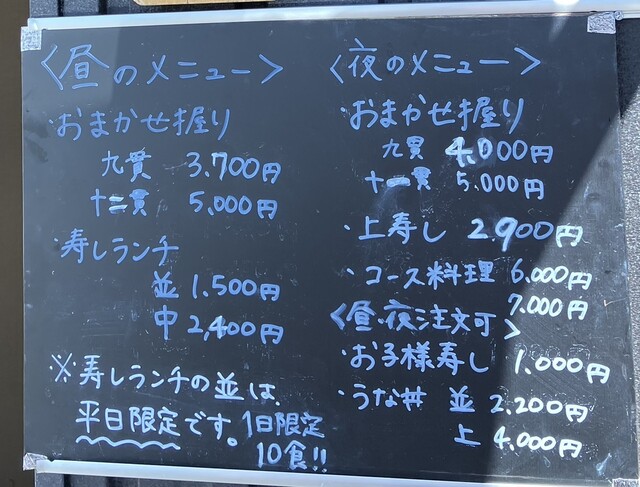 〈昼のメニュー〉
・おまかせ握り
九貫 3,700円
十二貫 5,000円
・寿しランチ
並 1,500円
中 2,400円
※寿しランチの並は、
平日限定です。1日限定
10食!!
〈夜のメニュー〉
・おまかせ握り
九貫 4,000円
十一貫 5,000円
・上寿し 2,900円
・コース料理 6,000円
7,000円
〈昼・夜注文可〉
・お子様寿し 1,000円
・うな丼 並 2,200円
上 4,000円